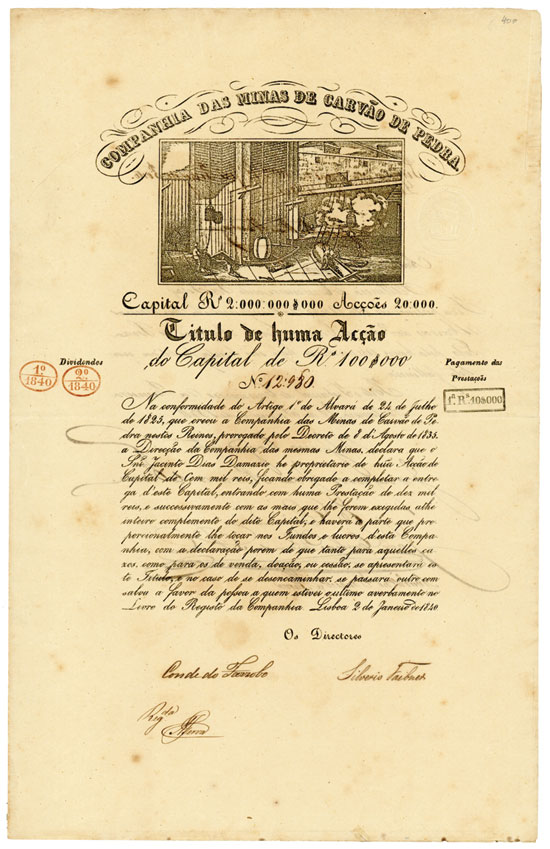 COMPANHIA DAS MINAS DE CARVÃO DE PEDRA
Capital Rs 2:000:000$000 Acções 20:000.
Titulo de huma Acção
do Capital de Rs 100$000
No 12:950
Dividendos
1º 1840
2º 1840
Pagamento das
Prestações
1ª Rs 10$000
Na conformidade do Artigo 1º do Alvará de 24 de Julho
de 1825, que creou a Companhia das Minas de Carvão de Pe
dra nestes Reinos, prorogado pelo Decreto de 8 d'Agosto de 1835.
a Direcção da Companhia das mesmas Minas, declara que o
Snr. Jacinto Dias Damazio he proprietario de hũa Acção do
Capital de Cem mil reis, ficando obrigado a completar a entre
ga d'este Capital, entrando com huma Prestação de dez mil
reis, e successivamente com as mais que lhe forem exegidas athe
inteiro complemento do dito Capital, e haverá a parte que pro
porcionalmente lhe tocar nos Fundos e lucros d'esta Compa
nhia, com a declaração porem de que tanto para aquelles ca
zos, como para os de venda, doação, ou cessão, se apresentará es
te Titulo, e no caso de se desencaminhar, se passará outro com
salva a favor da pessoa a quem estiver o ultimo averbamento no
Livro do Registo da Companhia. Lisboa 2 de Janeiro de 1840
Os Directores
Conde do Farrobo
Silverio Taibner
Rigda